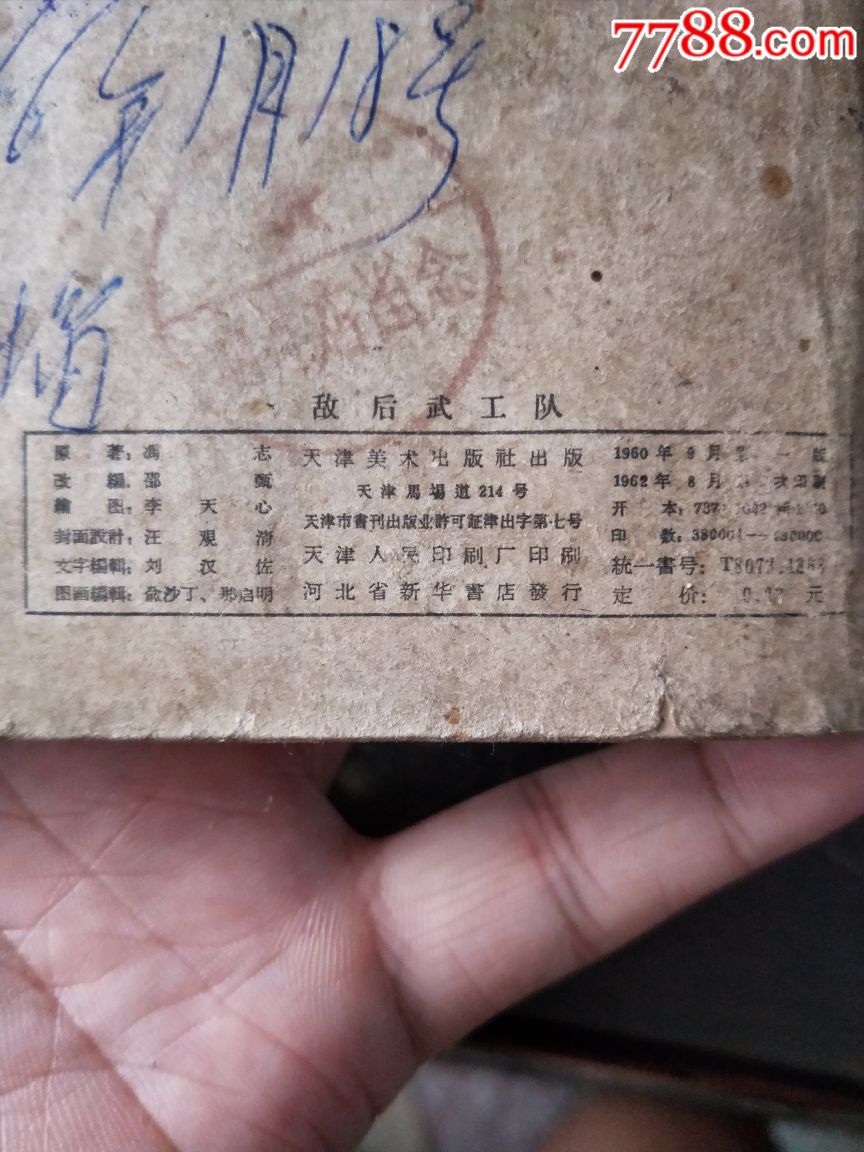 7788.com
年1月18号
念
敌后武工队
原著：馮志
改編：邵甄
繪图：李天心
封面設計：汪观清
文字編輯：刘汉佐
图画編輯：俞沙丁、那启明
天津美术出版社出版
天津馬場道214号
天津市書刊出版业許可証津出字第七号
天津人民印刷厂印刷
河北省新华書店發行
1960年9月第一版
1962年8月
开本：
印数：
統一書号：T8073
定价：元